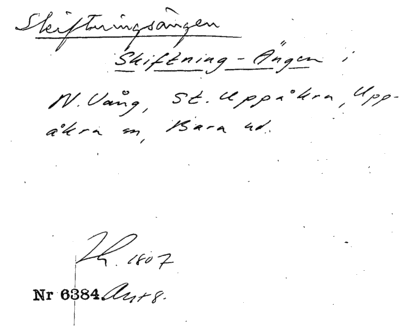 Skiftningsängen
Skiftning-Ängen i
N. Vång, St. Uppåkra, Upp-
åkra sn, Bara hd.
Lh. 1807
Nr 6384 Akt 8.